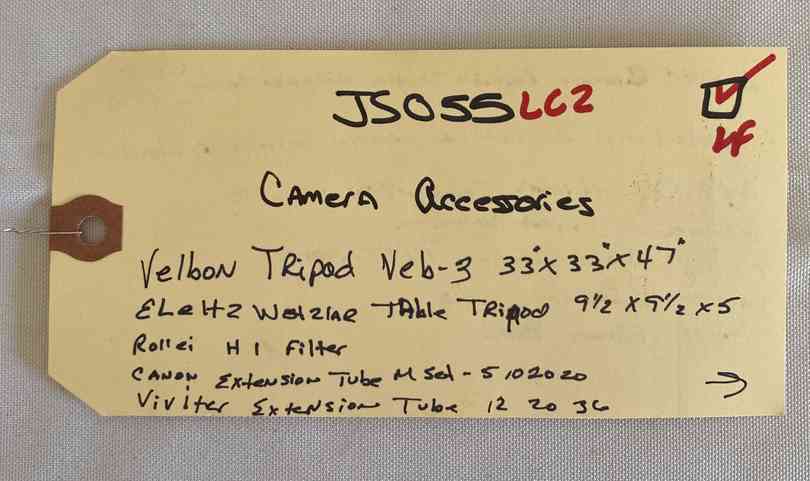 JS055LC2
LF
Camera Accessories
Velbon Tripod Veb-3 33"x33"x47"
ELeitz Wetzlar Table Tripod 9½ x 9½ x 5
Rollei H 1 Filter
Canon Extension Tube M Set - 5 10 20 20
Viviter Extension Tube 12 20 36
→